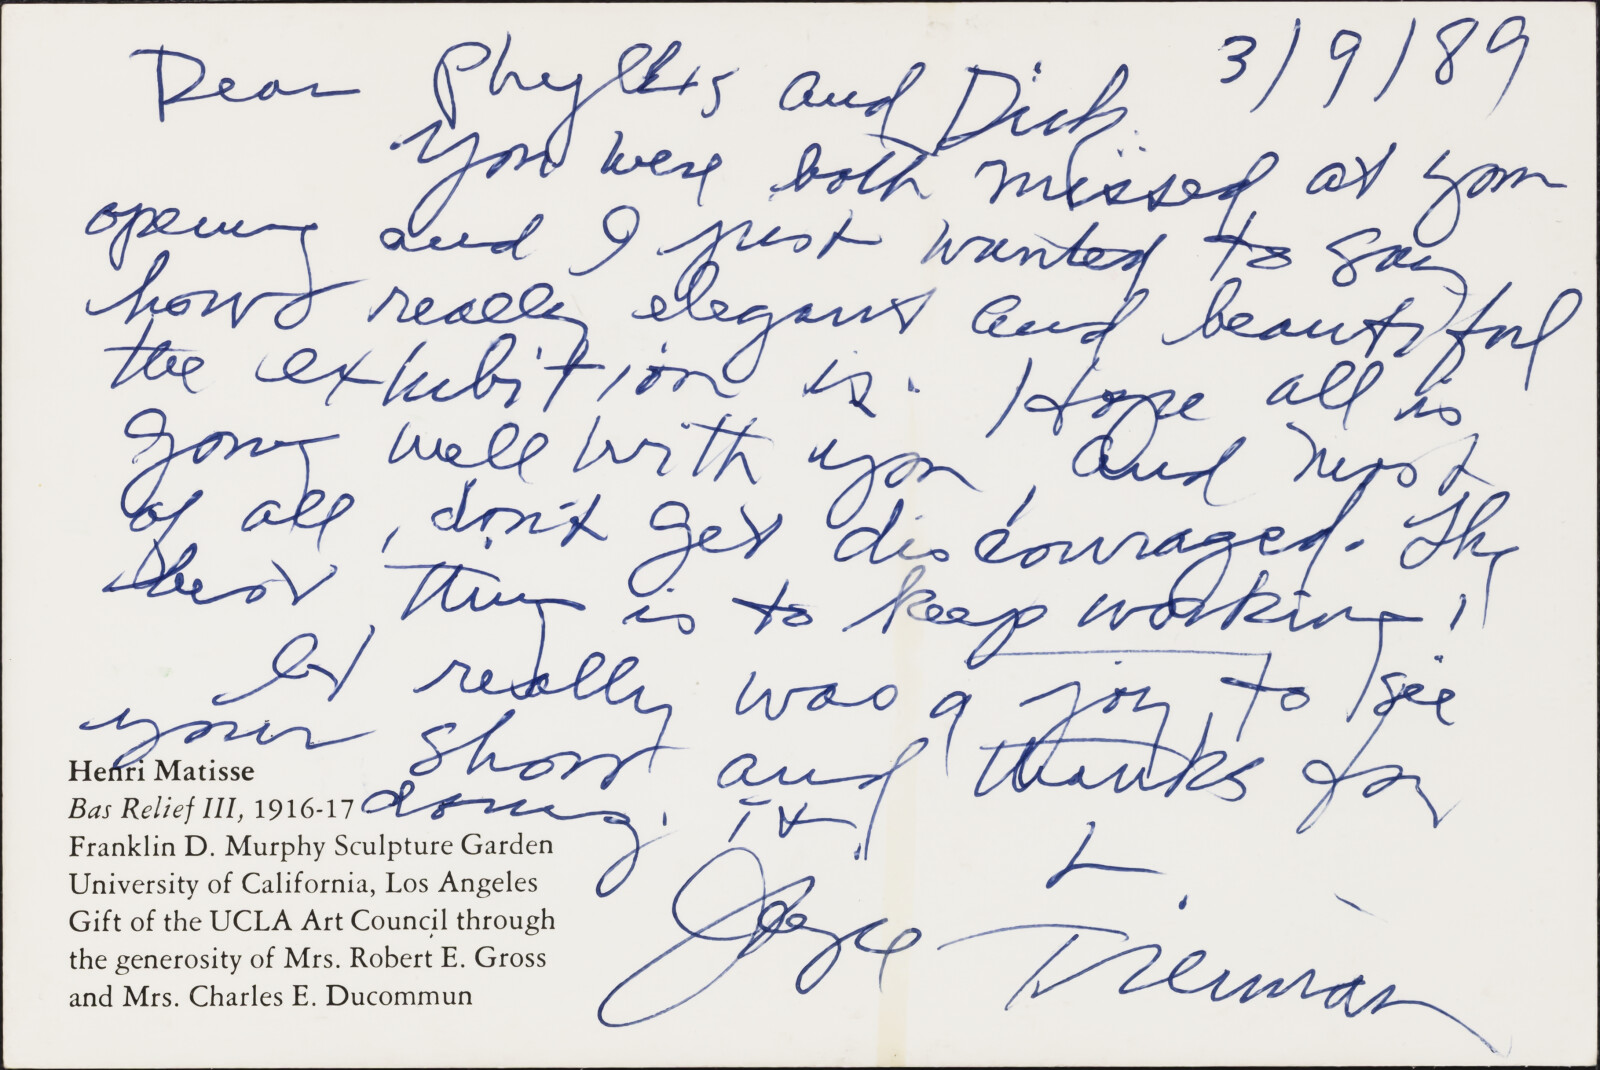 3/9/89
Dear Phyllis and Dick
You were both missed at your
opening and I just wanted to say
how really elegant and beautiful
the exhibition is. Hope all is
going well with you, and most
of all, don't get discouraged. The
best thing is to keep working!
It really was a joy to see
your show and thanks for
doing it!
L
Joyce Treiman
Henri Matisse
Bas Relief III, 1916-17
Franklin D. Murphy Sculpture Garden
University of California, Los Angeles
Gift of the UCLA Art Council through
the generosity of Mrs. Robert E. Gross
and Mrs. Charles E. Ducommun